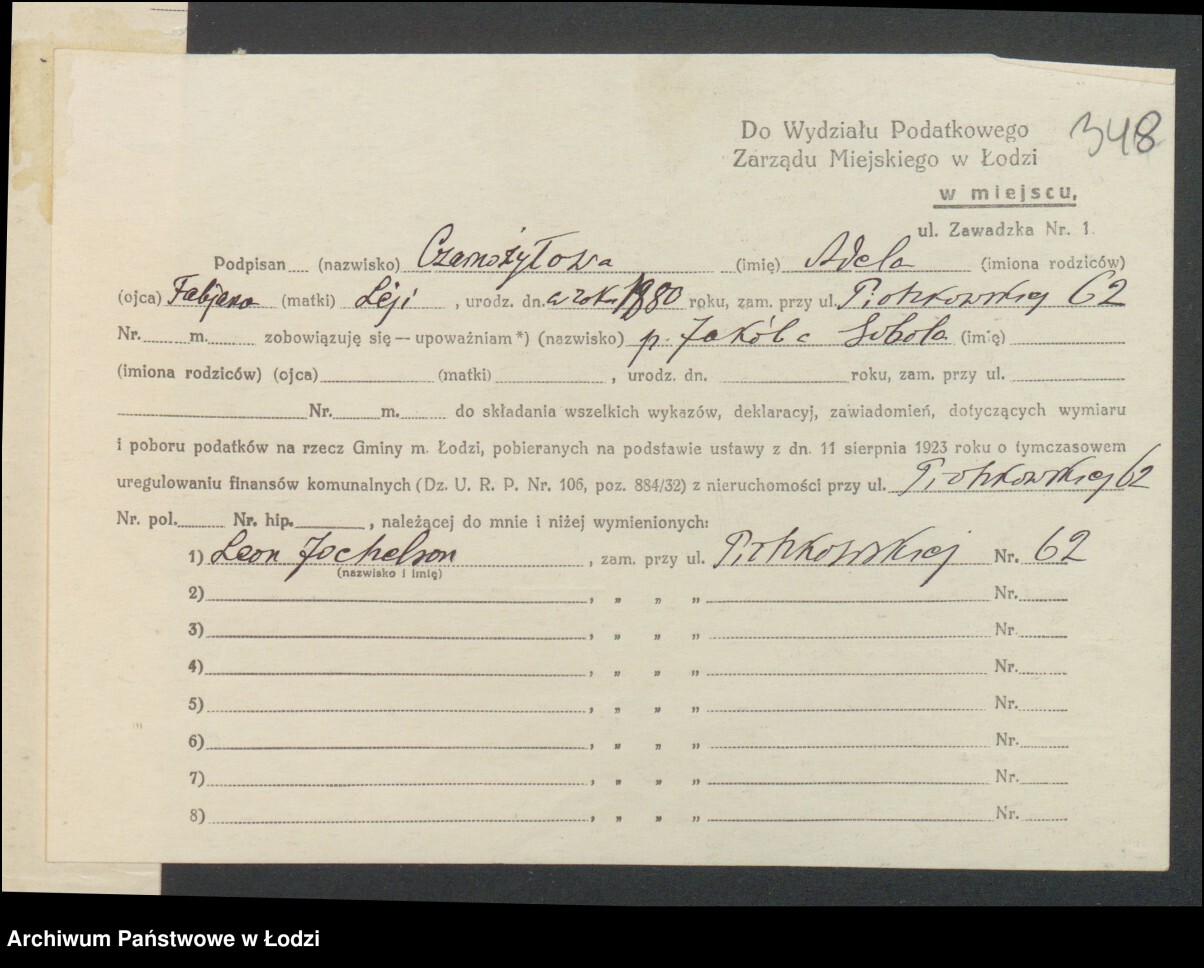 348
Do Wydziału Podatkowego
Zarządu Miejskiego w Łodzi
w miejscu,
ul. Zawadzka Nr. 1.
Podpisan.... (nazwisko) Czarnożyłowa (imię) Adela (imiona rodziców)
(ojca) Fabjana (matki) Łeji , urodz. dn. w roku 1880 roku, zam. przy ul. Piotrkowskiej 62
Nr. m. zobowiązuję się — upoważniam *) (nazwisko) p. Jakóba Sobola (imię)
(imiona rodziców) (ojca) (matki) , urodz. dn. roku, zam. przy ul.
Nr. m. do składania wszelkich wykazów, deklaracyj, zawiadomień, dotyczących wymiaru
i poboru podatków na rzecz Gminy m. Łodzi, pobieranych na podstawie ustawy z dn. 11 sierpnia 1923 roku o tymczasowem
uregulowaniu finansów komunalnych (Dz. U. R. P. Nr. 106, poz. 884/32) z nieruchomości przy ul. Piotrkowskiej 62
Nr. pol. Nr. hip. , należącej do mnie i niżej wymienionych:
1) Leon Jochelson , zam. przy ul. Piotrkowskiej Nr. 62
(nazwisko i imię)
2) , „ „ „ Nr.
3) , „ „ „ Nr.
4) , „ „ „ Nr.
5) , „ „ „ Nr.
6) , „ „ „ Nr.
7) , „ „ „ Nr.
8) , „ „ „ Nr.
Archiwum Państwowe w Łodzi